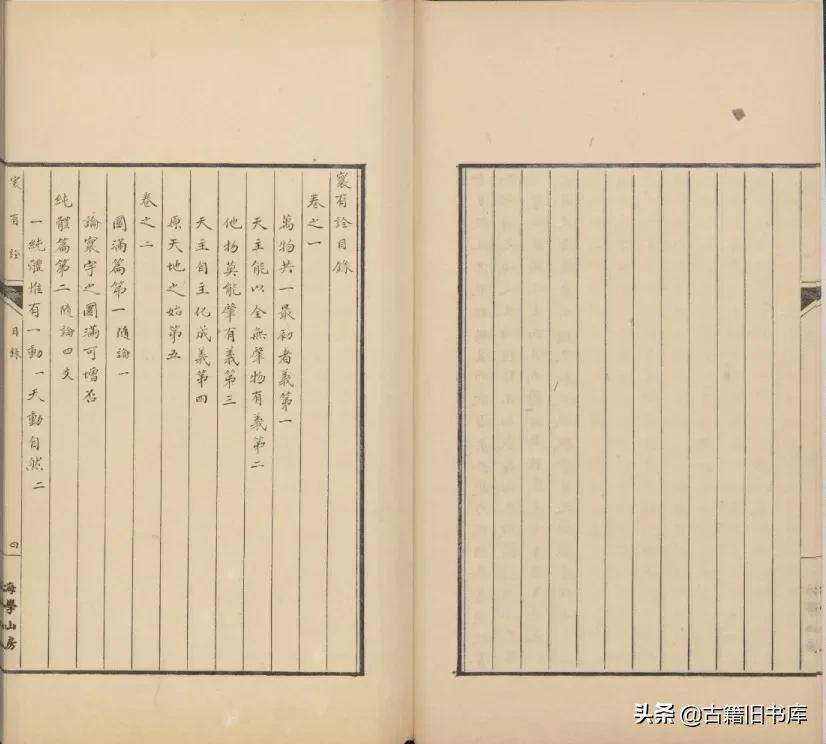 寰有詮目錄
卷之一
萬物共一最初者義第一
天主能以全無肇物有義第二
他物莫能肇有義第三
天主自主化成義第四
原天地之始第五
卷之二
圜滿篇第一隨論一
論寰宇之圜滿可增否
純體篇第二隨論四支
一純體惟有一動一天動自然二
寰有詮
目錄
四
海學山房
头条 @古籍旧书库